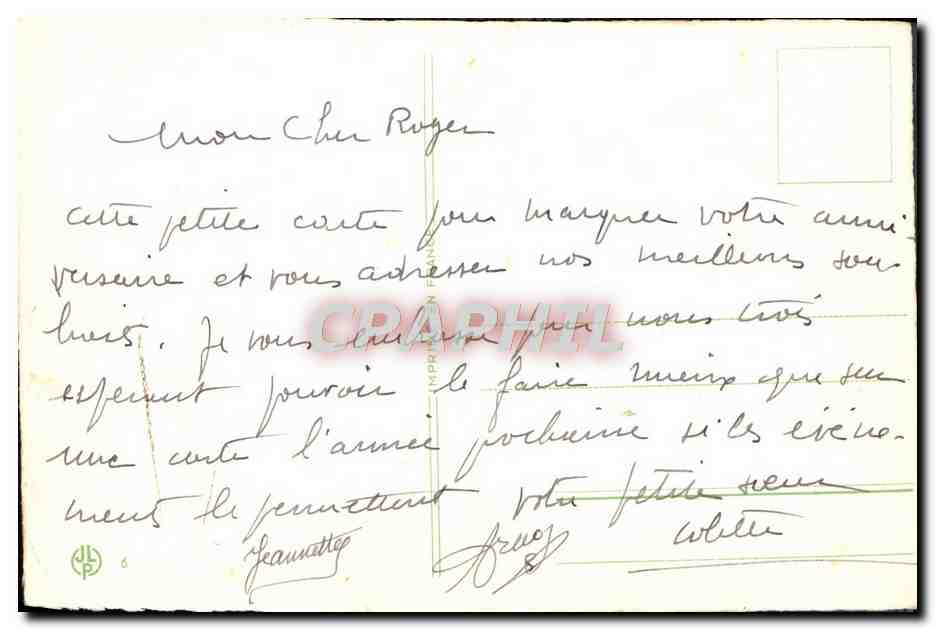 Mon Cher Roger
cette petite carte pour marquer votre anni-
versaire et vous adresser nos meilleurs sou
haits. Je vous embrasse pour nous trois
espérant pouvoir le faire mieux que sur
une carte l'année prochaine si les évène-
ments le permettent votre petite soeur
Jeannette
Colette
JLP 6
IMPRIMÉ EN FRANCE
CPAPHIL